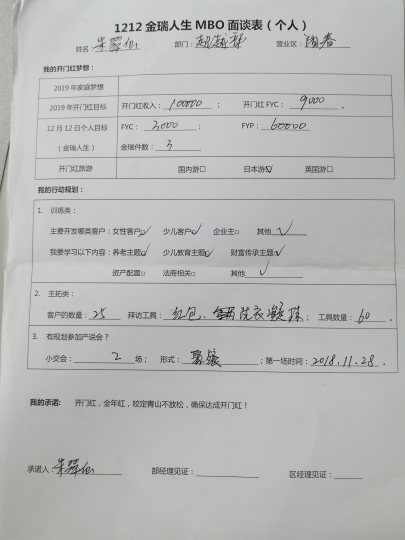 1212 金瑞人生 MBO 面谈表（个人）
姓名 朱翠仙 部门：超越部 营业区：阳春
我的开门红梦想：
2019 年家庭梦想
2019 年开门红目标 开门红收入：100000 ； 开门红 FYC： 9000 .
12 月 12 日个人目标 FYC： 3000 ； FYP： 60000
（金瑞人生） 金瑞件数： 3
开门红旅游 国内游□ 日本游☑ 英国游□
我的行动规划：
1. 训练类：
主要开发哪类客户：女性客户☑ 少儿客户☑ 企业主□ 其他 √
我要学习以下内容：养老主题☑ 少儿教育主题☑ 财富传承主题☑
资产配置□ 法商相关□ 其他 √
2. 主拓类：
客户的数量： 25 拜访工具： 红包、洗衣凝珠 ； 工具数量： 60 .
3. 有规划参加产说会？
小交会： 2 场； 形式： 聚餐 ；第一场时间： 2018.11.28 .
我的承诺： 开门红，全年红，咬定青山不放松，确保达成开门红！
承诺人：朱翠仙 部经理见证： 区经理见证：